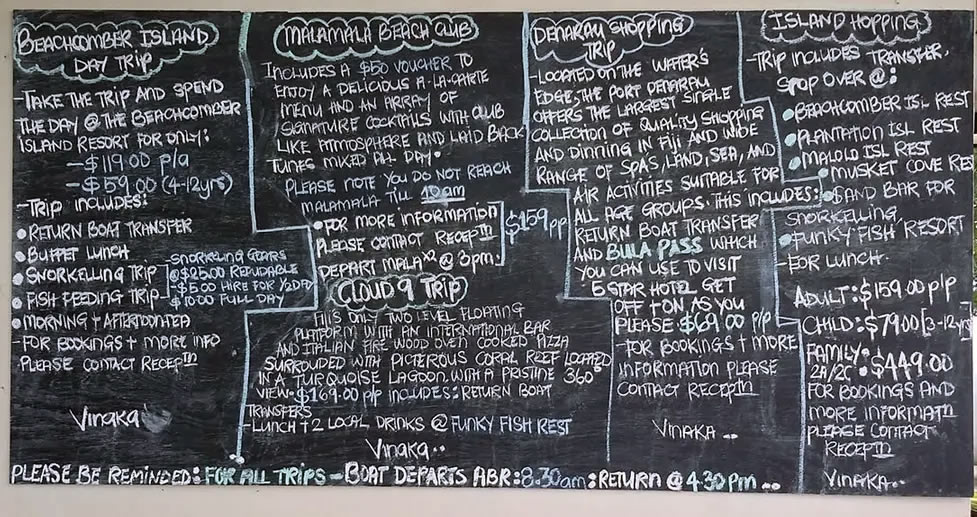 BEACHCOMBER ISLAND
DAY TRIP
-TAKE THE TRIP AND SPEND
THE DAY @ THE BEACHCOMBER
ISLAND RESORT FOR ONLY:
-$119.00 p/a
-$59.00 (4-12yrs)
-TRIP INCLUDES:
•RETURN BOAT TRANSFER
•BUFFET LUNCH
•SNORKELLING TRIP
•FISH FEEDING TRIP-
-SNORKELLING GEARS
@$25.00 REFUDABLE
$5.00 HIRE FOR ½DAY
$10.00 FULL DAY
•MORNING + AFTERTOONTEA
-FOR BOOKINGS + MORE INFO
PLEASE CONTACT RECEPTN
VINAKA
MALAMALA BEACH CLUB
INCLUDES A $50 VOUCHER TO
ENJOY A DELICIOUS A-LA-CARTE
MENU AND AN ARRAY OF
SIGNATURE COCKTAILS WITH CLUB
LIKE ATMOSPHERE AND LAID BACK
TUNES MIXED ALL DAY.
PLEASE NOTE YOU DO NOT REACH
MALAMALA TILL 10am
•FOR MORE INFORMATION
PLEASE CONTACT RECEPTN
DEPART MALAx2 @ 3pm.
$159 pp
CLOUD 9 TRIP
FIJI'S ONLY TWO LEVEL FLOATING
PLATFORM WITH AN INTERNATIONAL BAR
AND ITALIAN FIRE WOOD OVEN COOKED PIZZA
SURROUNDED WITH PICTEROUS CORAL REEF LOCATED
IN A TURQUOISE LAGOON WITH A PRISTINE 360°
VIEW. $169.00 p/p INCLUDES: RETURN BOAT
TRANSFERS
-LUNCH + 2 LOCAL DRINKS @ FUNKY FISH REST
VINAKA..
DENARAU SHOPPING
TRIP
-LOCATED ON THE WATER'S
EDGE, THE PORT DENARAU
OFFERS THE LARGEST SINGLE
COLLECTION OF QUALITY SHOPPING
AND DINNING IN FIJI AND WIDE
RANGE OF SPAS, LAND, SEA, AND
AIR ACTIVITIES SUITABLE FOR
ALL AGE GROUPS. THIS INCLUDES:
RETURN BOAT TRANSFER
AND BULA PASS WHICH
YOU CAN USE TO VISIT
5 STAR HOTEL GET
OFF + ON AS YOU
PLEASE $69.00 p/p
-FOR BOOKINGS + MORE
INFORMATION PLEASE
CONTACT RECEPTN
VINAKA ..
ISLAND HOPPING
-TRIP INCLUDES TRANSFER,
STOP OVER @:
•BEACHCOMBER ISL REST
•PLANTATION ISL REST
•MALOLO ISL REST
•MUSKET COVE RES
•SAND BAR FOR
SNORKELLING
•FUNKY FISH RESORT
-FOR LUNCH.
ADULT: $159.00 p/p
CHILD: $79.00 [3-12yr
FAMILY: $449.00
2A/2C
FOR BOOKINGS AND
MORE INFORMATN
PLEASE CONTACT
RECEPTN
VINAKA..
PLEASE BE REMINDED: FOR ALL TRIPS - BOAT DEPARTS ABR: 8.30am: RETURN @ 4.30pm ..